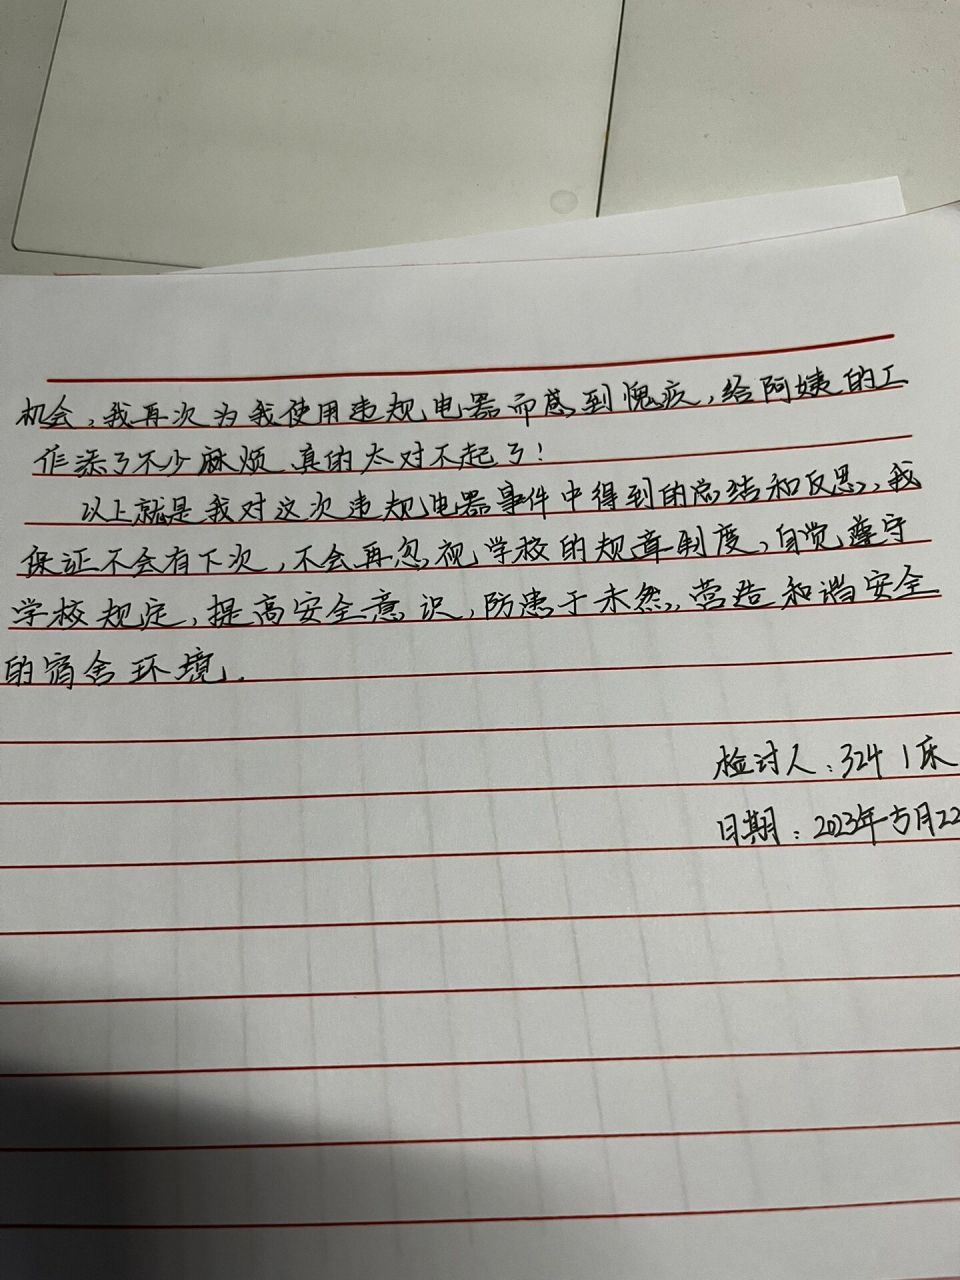 机会，我再次为我使用违规电器而感到愧疚，给阿姨的工
作添了不少麻烦 真的太对不起了！
以上就是我对这次违规电器事件中得到的总结和反思，我
保证不会有下次，不会再忽视学校的规章制度，自觉遵守
学校规定，提高安全意识，防患于未然，营造和谐安全
的宿舍环境.
检讨人：324 1床
日期：2023年5月22